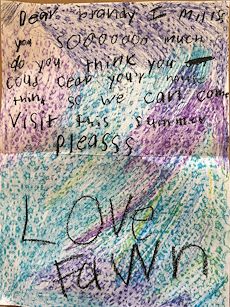 Dear brandy I miss
you sooooooo much
do you think you
coud cear your house
thing so we can come
visit this summer
pleasss
LOVe
FaWn